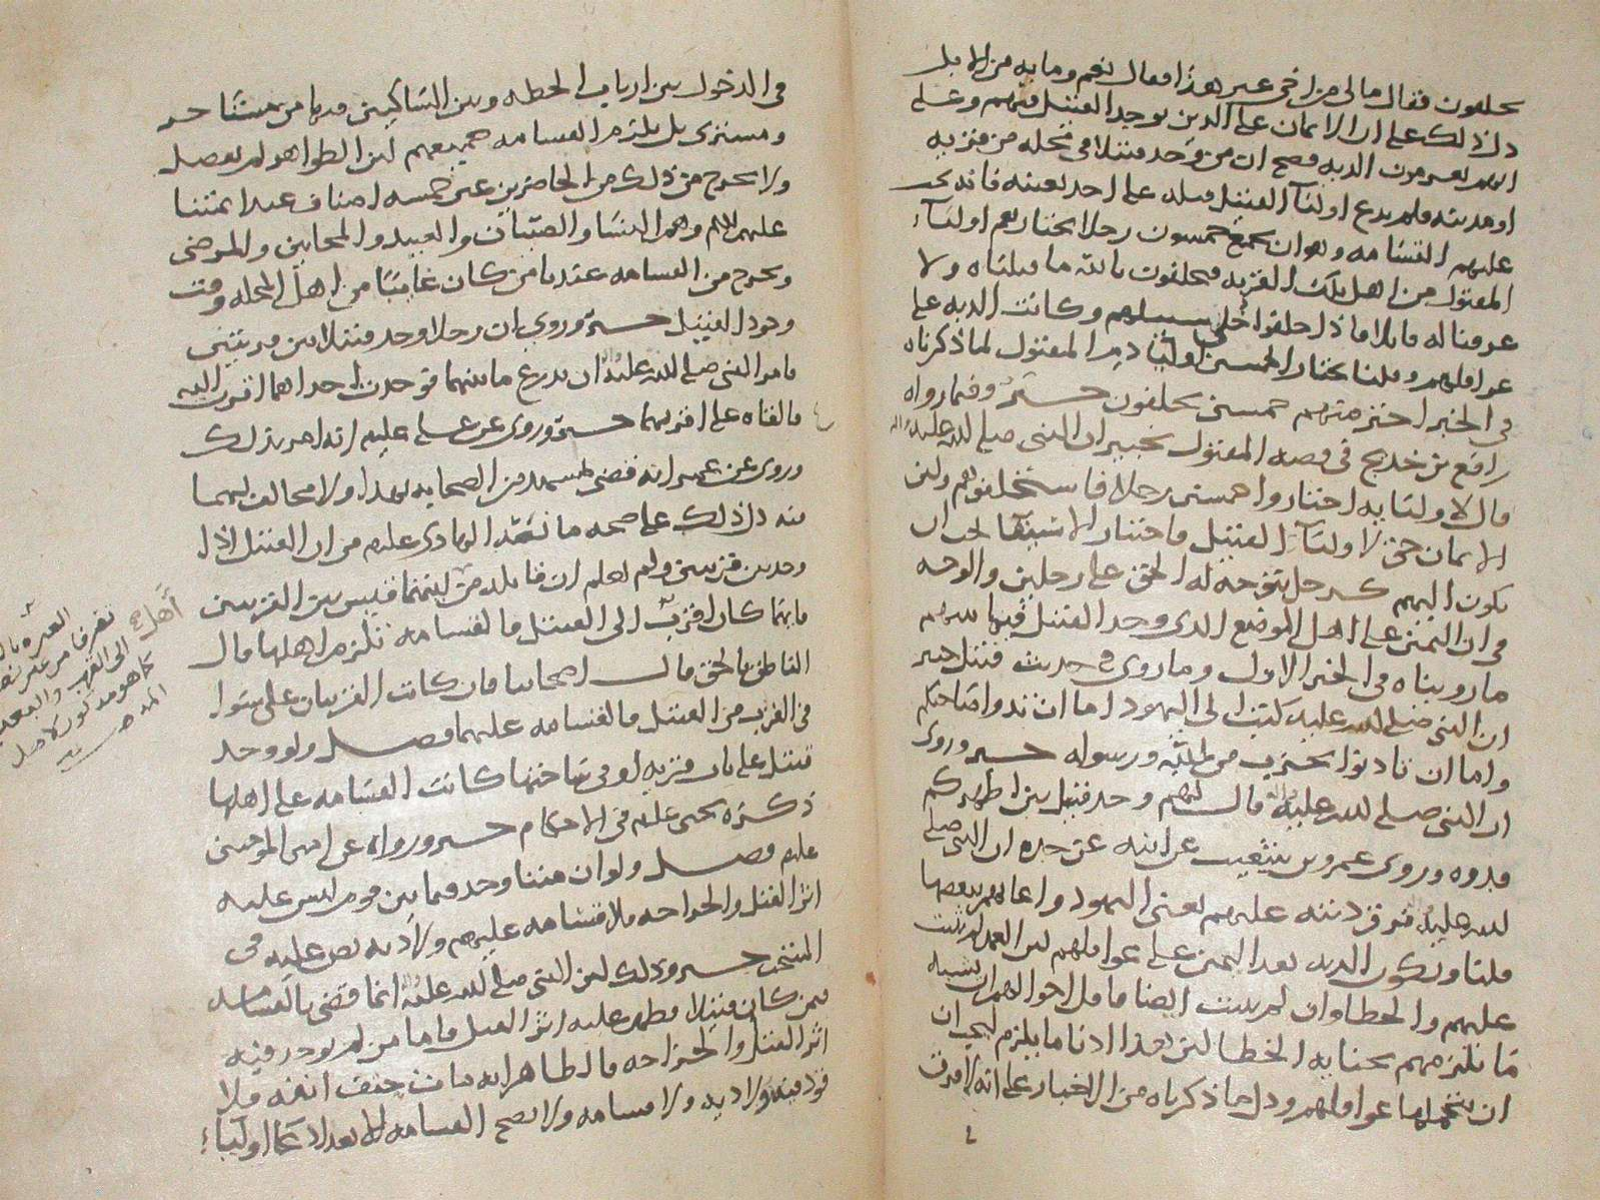 يحلفون فقال مالي من اخي غير هذا فقال نعم ومايه من الابل
دل ذلك على ان الايمان على الذين يوجد القتيل فيهم وعلى
الدية فصح ان من وجد قتيلا في محله من قريه
او مدينه ولم يدع اوليآ القتيل قتله على احد بعينه فانه
عليهم القسامه وهو ان يجمع خمسون رجلا يختارهم اوليآء
المقتول من اهل تلك القريه فيحلفون بالله ما قتلناه ولا
عرفنا له قاتلا فاذا حلفوا خلي سبيلهم وكانت الديه على
عواقلهم وقلنا يختار الخمسين اوليا دم المقتول لما ذكرناه
في الخبر اختر منهم خمسين يحلفون خبر وفيما رواه
رافع بن خديج في قصه المقتول بخيبر ان النبي صلى الله عليه واله
قال لاوليايه اختاروا خمسين رجلا فاستحلفوهم ولان
الايمان حق لاوليآ القتيل فاختيار الاستيفا يجب ان
يكون اليهم كرجل يتوجه له الحق على رجلين والوجه
في ان اليمين على اهل الموضع الذي وجد القتيل فيها بينهم
ما رويناه في الخبر الاول وما روي في حديث قتيل خيبر
ان النبي صلى الله عليه كتب الى اليهود اما ان تدوا صاحبكم
واما ان تاذنوا بحرب من الله ورسوله خبر وروي
ان النبي صلى الله عليه واله قال لهم وجد قتيل بين اظهركم
فدوه وروى عمرو بن شعيب عن ابيه عن جده ان النبي صلى
الله عليه فرق ديته عليهم يعني اليهود واعانهم ببعضها
قلنا وتكون الديه بعد اليمين على عواقلهم لان العمد لم يثبت
عليهم والخطا وان لم يثبت ايضا فاقل احوالهم ان يشبه
ما يلزمهم بجنايه الخطا لان هذا ادنا ما يلزم فيجب ان
ان تتحملها عواقلهم ودل ما ذكرناه من الاخبار على انه لا فرق
في الدخول بين ارباب الخطه وبين الساكنين فيها من مستاجر
ومشتري بل يلزم القسامه جميعهم لان الظواهر لم تفصل
ولا يخرج من ذلك من الحاضرين غير خمسه اصناف عند ايمتنا
عليهم السلم وهم النسا والصبيان والعبيد والمجانين والمرضى
ويخرج من القسامه عندنا من كان غايبا من اهل المحله وقت
وجود القتيل خبر وروي ان رجلا وجد قتيلا بين قريتين
فامر النبي صلى الله عليه واله ان يذرع ما بينهما فوجدت احداهما اقرب اليه
فالقاه على اقربهما خبر وروي عن علي عليلم انه امر بذلك
وروي عن عمر انه قضى بمشهد من الصحابه بهذا ولا مخالف لهما
منه دل ذلك على صحه ما نصه الهادي عليلم من ان القتيل اذا
وجد بين قريتين ولم يعلم ان قاتله من ايتهما قيس بين القريتين
فايهما كان اقرب الى القتيل فالقسامه تلزم اهلها قال
الناطق بالحق قال اصحابنا فان كانت القريتان على سوا
في القرب من القتيل فالقسامه عليهما فصل ولو وجد
قتيل على باب قريه او في ساحتها كانت القسامه على اهلها
ذكره يحيى عليلم في الاحكام خبر ورواه عن امير المومنين
عليلم فصل ولو ان ميتا وجد فيما بين قوم ليس عليه
اثر القتل والجراحه فلا قسامه عليهم ولا ديه نص عليه في
المنتخب خبر وذلك لان النبي صلى الله عليه واله انما قضى بالقسامه
فيمن كان قتيلا فظهر عليه اثر القتل فاما من لم يوجد فيه
اثر القتل والجراحه فالظاهر انه مات حتف انفه فلا
قود فيه ولا ديه ولا قسامه ولا تصح القسامه الا بعد ادعا اوليآء